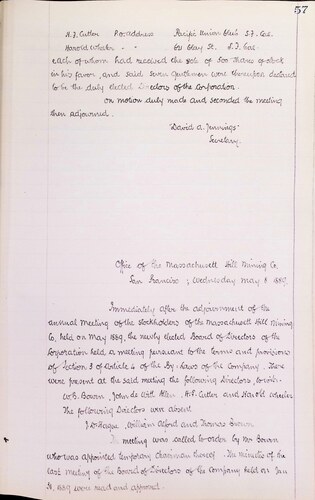 57
H. F. Cutler P.O. address Pacific Union Club S.F. Cal.
Harold Wheeler " " Clay St. S.F. Cal.
each of whom had received the vote of 500 shares of stock
in his favor, and said seven gentlemen were thereupon declared
to be the duly elected Directors of the Corporation.
On motion duly made and seconded the meeting
then adjourned.
David A. Jennings
Secretary.
Office of the Massachusett Hill Mining Co.
San Francisco, Wednesday, May 8 1889.
Immediately after the adjournment of the
annual meeting of the stockholders of the Massachusett Hill Mining
Co. held on May 1889, the newly elected Board of Directors of the
Corporation held a meeting pursuant to the terms and provisions
of Section 3 of Article 4 of the By-Laws of the Company. There
were present at the said meeting the following Directors, to-wit:-
W. B. Bourn, John de Witt Allen, H. F. Cutler and Harold Wheeler
The following Directors were absent
J. D. Hague, William Alvord and Thomas Brown
The meeting was called to order by Mr Bourn
who was appointed temporary chairman thereof. The minutes of the
last meeting of the Board of Directors of the Company held on Jan
1889 were read and approved.